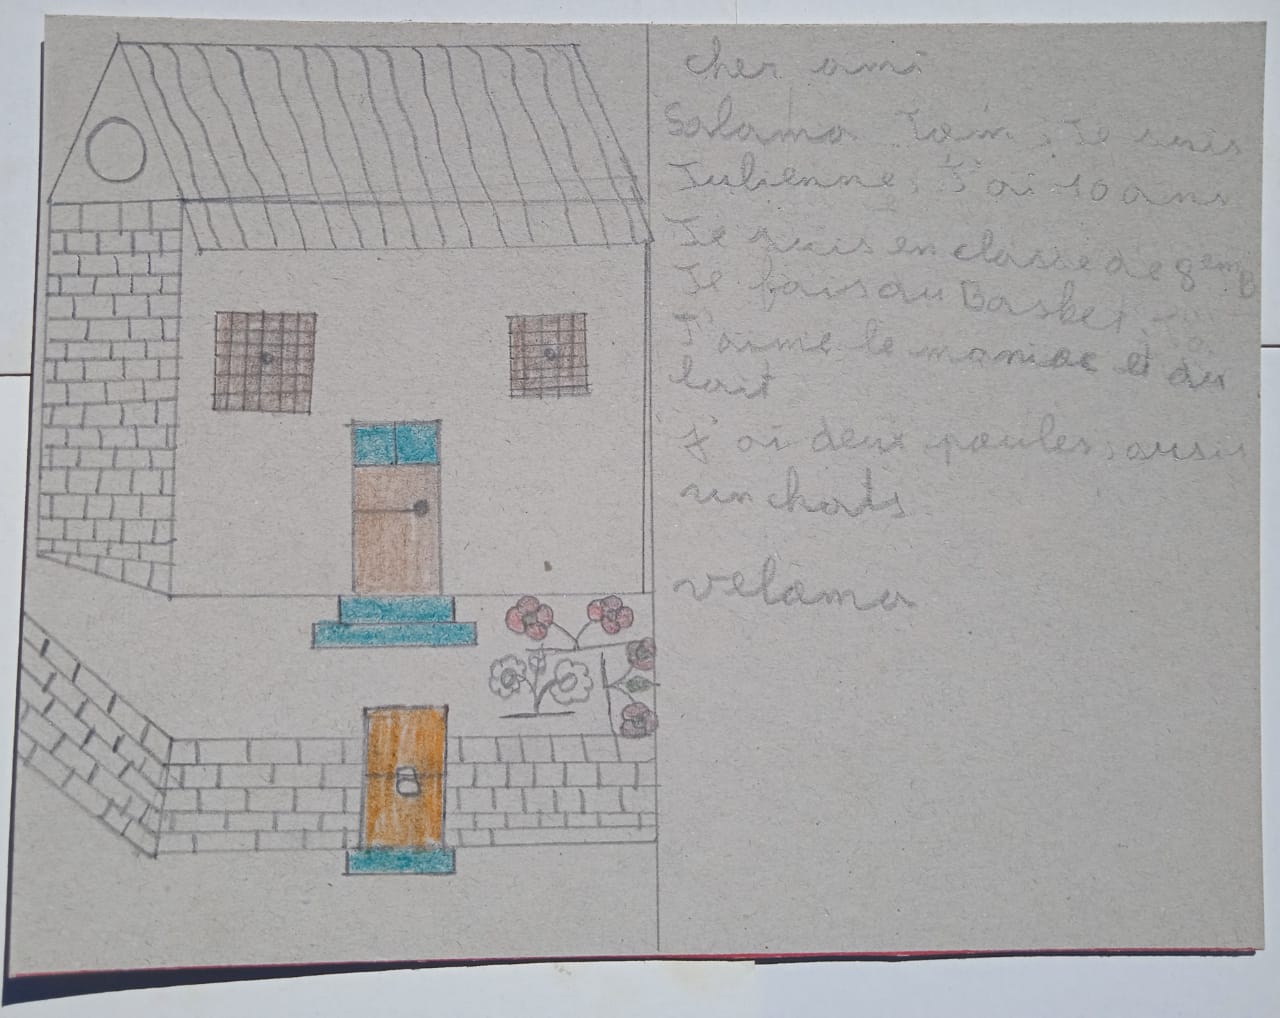 cher ami
Salama Tom, Je suis
Julienne, J'ai 10 ans
Je suis en classe de 8em B
Je fais du Basket
J'aime le manioc et du
lait
J'ai deux poules, aussi
un chats
velama